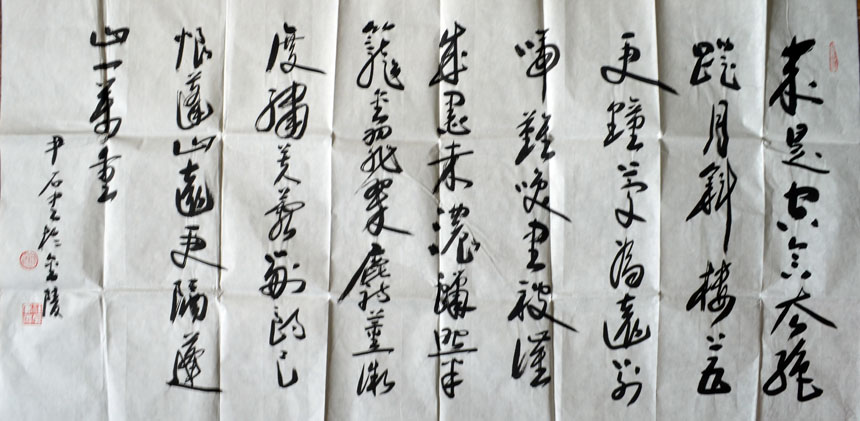 來是空言去絕
蹤月斜樓上五
更鐘夢為遠別
啼難喚書被催
成墨未濃蠟照半
籠金翡翠麝薰微
度繡芙蓉劉郎已
恨蓬山遠更隔蓬
山一萬重
尹石書於金陵